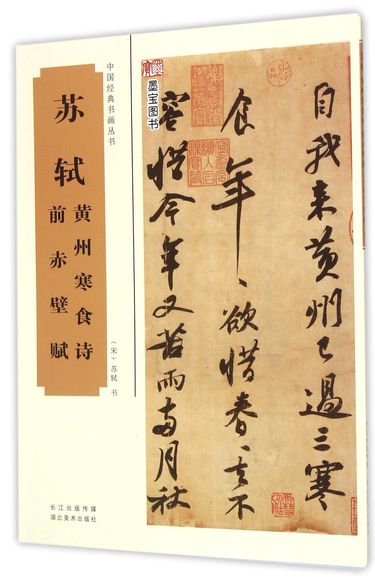 中国经典书画丛书
苏轼
黄州寒食诗
前赤壁赋
（宋）苏轼 书
长江出版传媒
湖北美术出版社
墨宝图书
自我来黄州已过三寒
食年〻欲惜春〻去不
容惜今年又苦雨两月秋